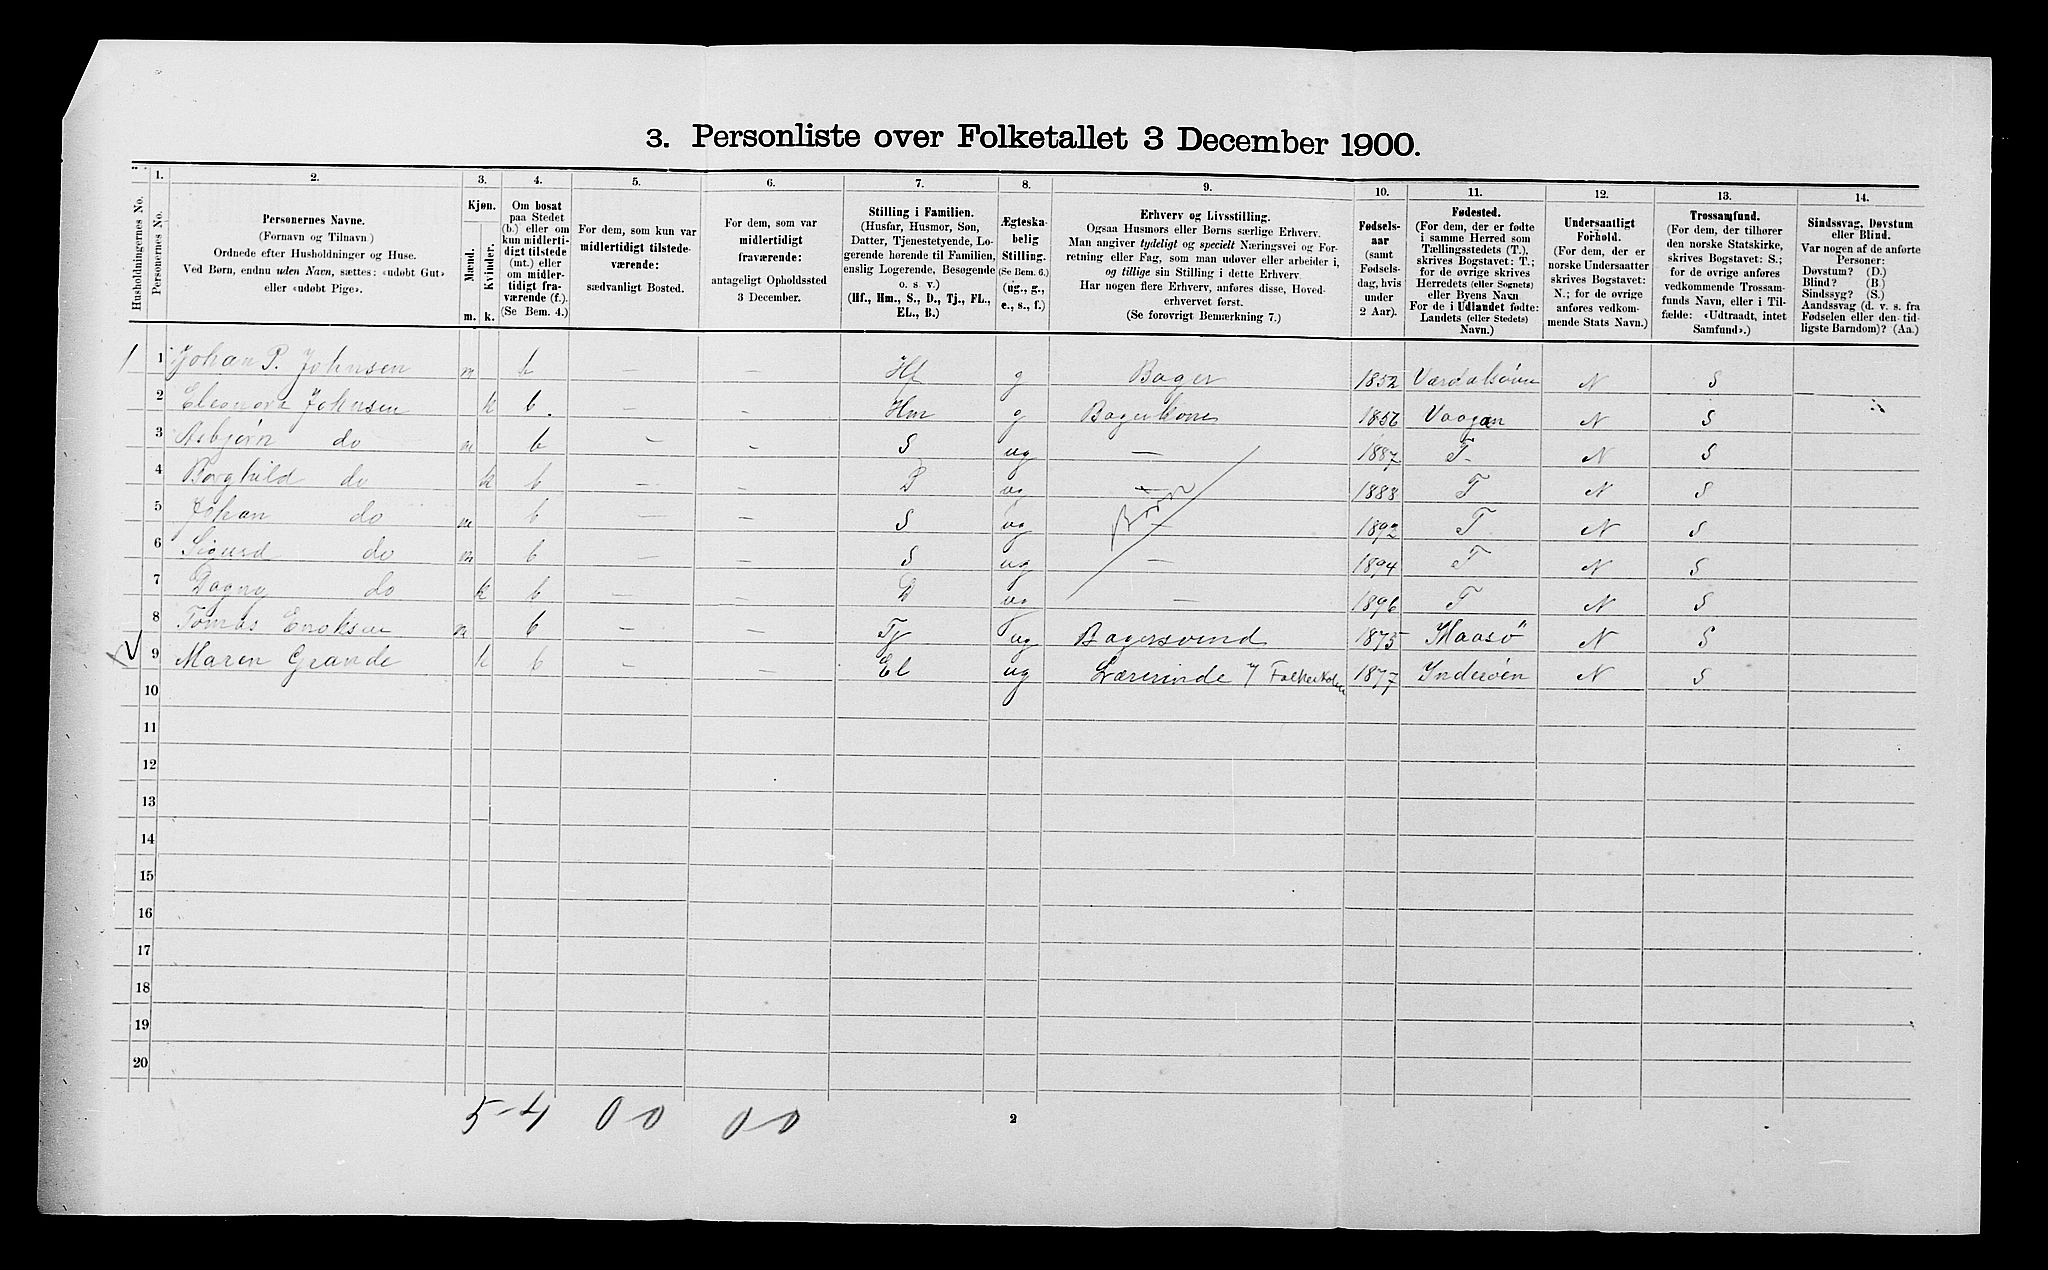 3. Personliste over Folketallet 3 December 1900.
Husholdningernes No.
1. Personernes No.
2.
Personernes Navne.
(Fornavn og Tilnavn)
Ordnede efter Husholdninger og Huse.
Ved Børn, endnu uden Navn, sættes: «udøbt Gut»
eller «udøbt Pige».
3.
Kjøn.
Mænd. Kvinder.
m. k.
4.
Om bosat
paa Stedet
(b.) eller om
kun midlerti-
digt tilstede
(mt.) eller
om midler-
tidigt fra-
værende (f.).
(Se Bem. 4.)
5.
For dem, som kun var
midlertidigt tilstede-
værende:
sædvanligt Bosted.
6.
For dem, som var
midlertidigt
fraværende:
antageligt Opholdssted
3 December.
7.
Stilling i Familien.
(Husfar, Husmor, Søn,
Datter, Tjenestetyende, Lo-
gerende hørende til Familien,
enslig Logerende, Besøgende
o. s. v.)
(Hf., Hm., S., D., Tj., FL.,
EL., B.)
8.
Ægteska-
belig
Stilling.
(Se Bem. 6.)
(ug., g.,
e., s., f.)
9.
Erhverv og Livsstilling.
Ogsaa Husmors eller Børns særlige Erhverv.
Man angiver tydeligt og specielt Næringsvei og For-
retning eller Fag, som man udøver eller arbeider i,
og tillige sin Stilling i dette Erhverv.
Har nogen flere Erhverv, anføres disse, Hoved-
erhvervet først.
(Se forøvrigt Bemærkning 7.)
10.
Fødsels-
aar
(samt
Fødsels-
dag, hvis
under
2 Aar).
11.
Fødested.
(For dem, der er fødte
i samme Herred som
Tællingsstedets (T.),
skrives Bogstavet: T.;
for de øvrige skrives
Herredets (eller Sognets)
eller Byens Navn
For de i Udlandet fødte:
Landets (eller Stedets)
Navn.)
12.
Undersaatligt
Forhold.
(For dem, der er
norske Undersaatter
skrives Bogstavet:
N.; for de øvrige
anføres vedkom-
mende Stats Navn.)
13.
Trossamfund.
(For dem, der tilhører
den norske Statskirke,
skrives Bogstavet: S.;
for de øvrige anføres
vedkommende Trossam-
funds Navn, eller i Til-
fælde: «Udtraadt, intet
Samfund».)
14.
Sindssvag, Døvstum
eller Blind.
Var nogen af de anførte
Personer:
Døvstum? (D.)
Blind? (B.)
Sindssyg? (S.)
Aandssvag (d. v. s. fra
Fødselen eller den tid-
ligste Barndom)? (Aa.)
1 1 Johan P. Johnsen m b — — Hf g Bager 1852 Værdalsøren N S
2 Eleonora Johnsen k b. — — Hm g Bagerkone 1856 Vaagan N S
3 Asbjørn do m b — — S ug — 1887 T N S
4 Borghild do k b — — D ug — 1888 T N S
Børn
5 Johan do m b — — S ug — 1892 T N S
6 Sigurd do m b — — S ug — 1894 T N S
7 Dagny do k b — — D ug — 1896 T N S
8 Tomas Enoksen m b — — Tj ug Bagersvend 1875 Maasö N S
9 Maren Grande k b — — El ug Lærerinde v/ Folkeskolen 1877 Inderøen N S
10
11
12
13
14
15
16
17
18
19
20
5-4 0 0 0 0
2